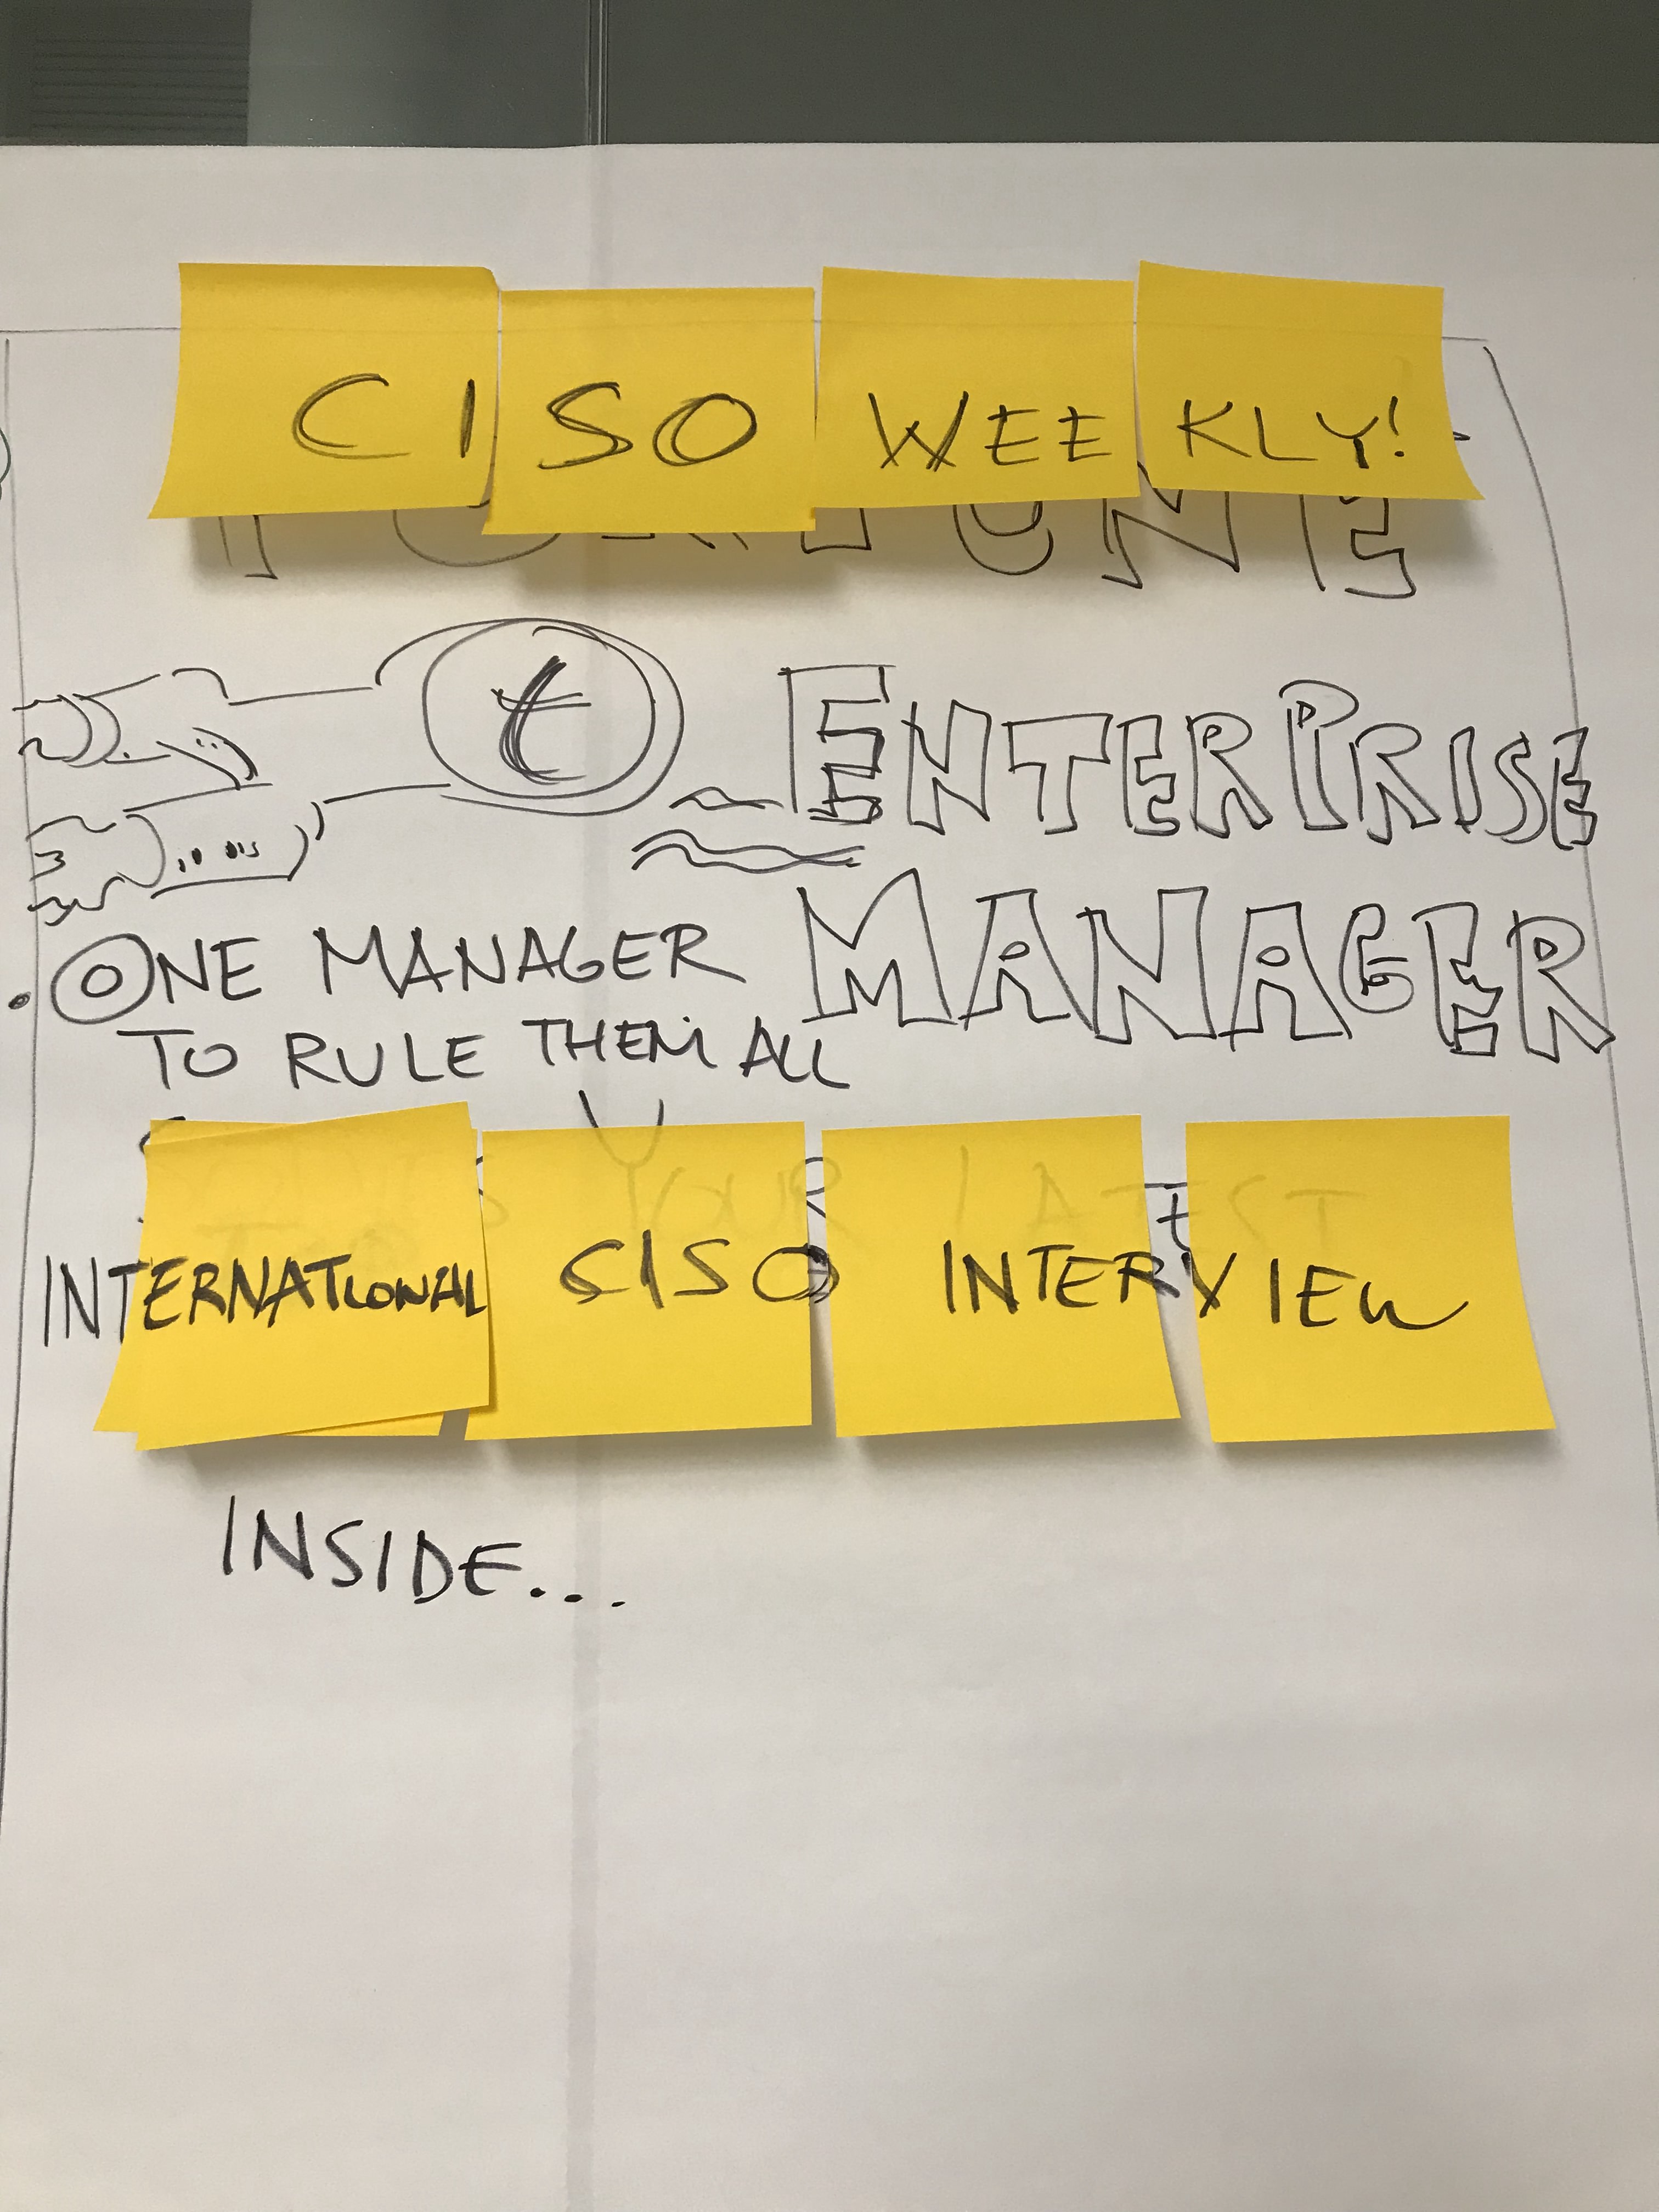 CISO WEEKLY!
FORTUNE
t
ENTERPRISE
MANAGER
ONE MANAGER
TO RULE THEM ALL
INTERNATIONAL CISO INTERVIEW
INSIDE...